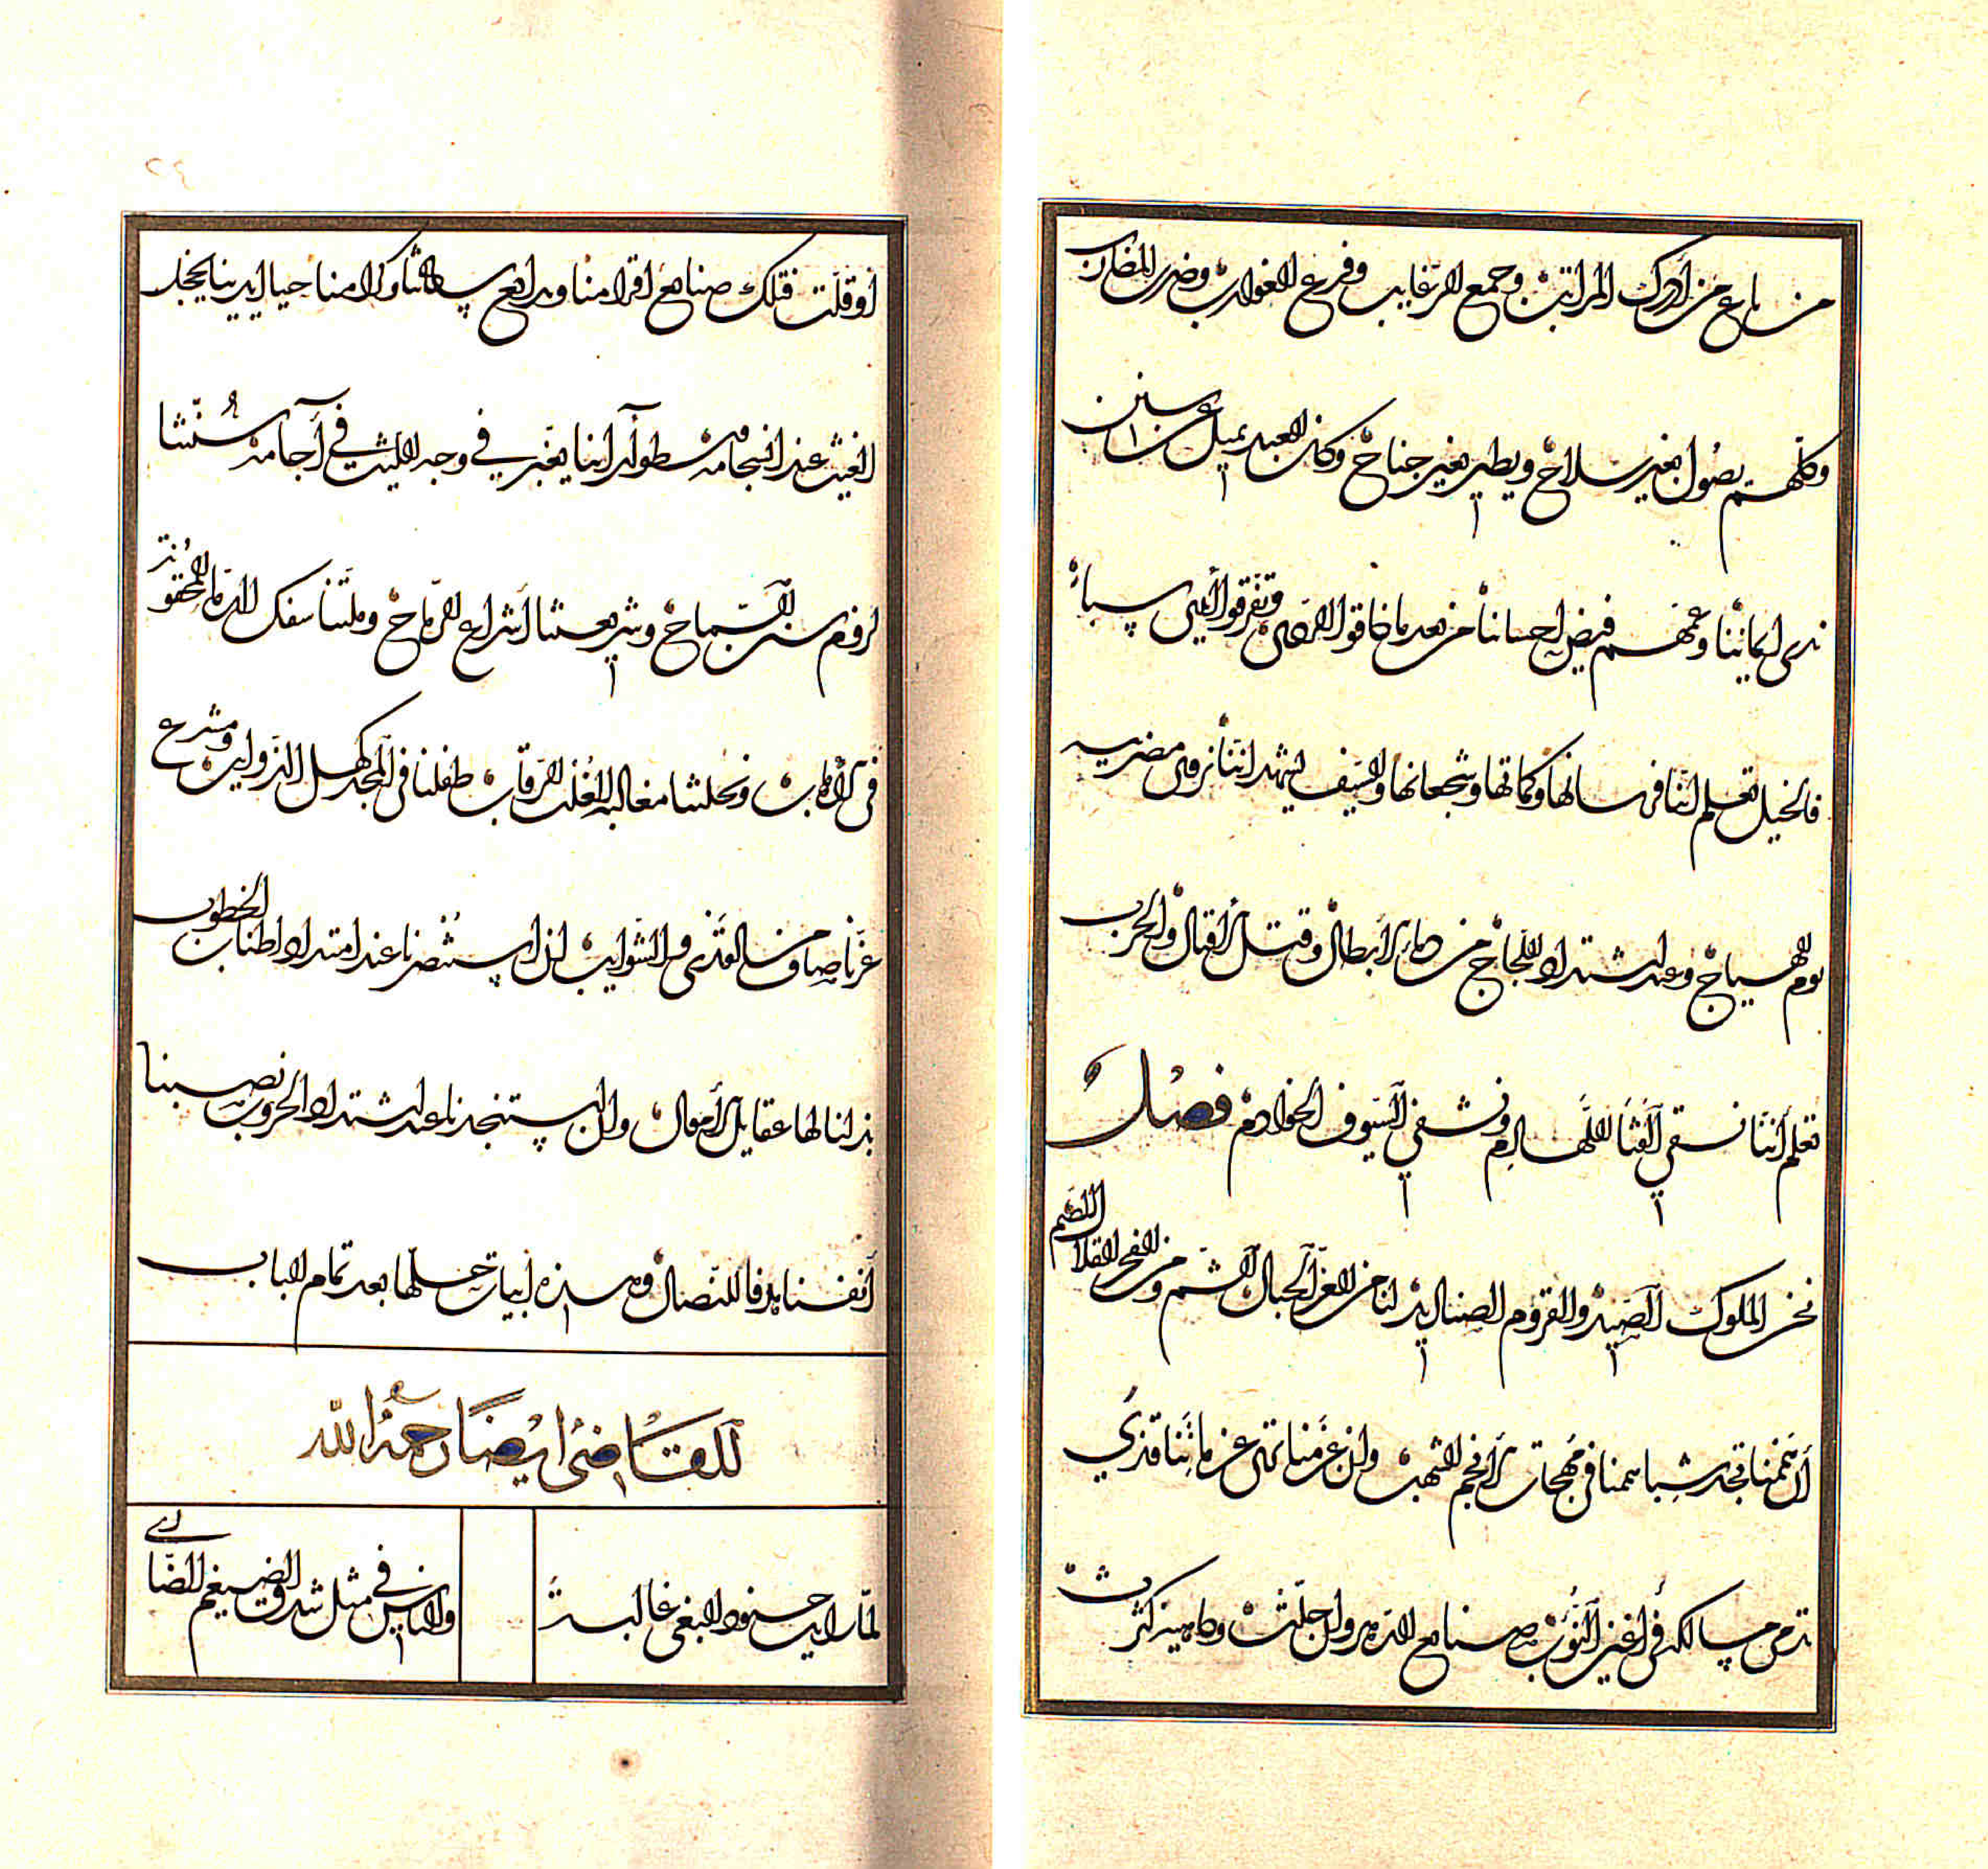 من باع من أدرك المراتب وجمع الرغايب وفرع الغوارب وضرب المضارب
وكلهم يصول بغير سلاح ويطير بغير جناح وكان العبد يميل عن سنن
ندى ايماننا وعمهم فيض احساننا من بعد ما ضاقوا وتفرقوا أيدي سبا
فالخيل تعلم اننا فرسانها وكماتها وشجعانها والسيف يشهد اننا نروى مضربيه
يوم الهياج وعند اشتداد اللجاج من دماء الأبطال وقتل الأقيال والحرب
تعلم أننا نسقي القنا اللهازم ونشفي السيوف الخواذم فصل
نحن الملوك الصيد والقروم الصناديد لنا من العز الجبال الشم ومن الفخر القلاد الصم
أن هممنا تجد شبا سمنا في مهجات الأنجم الشهب وان عزمنا تهن عزماتنا قذي
تدمى مسالكه في أعين النوب صنايع الدهر وان جلت وداهية كثرت
أو قلت فتلك صنايع اقدامنا وبدايع اقلامنا حيا ايدينا يخجل
الغيث عند انسجامه وسطو آرائنا يغبر في وجه الليث في آجامه سنتنا
لزوم سنن السماح وشريعتنا أشراع الرماح وملتنا سفك الدما المحقونة
في الأهاب ونحلتنا مغالبة الغلب الرقاب طفلنا في المجد كهل الذوايب ومشرع
عزنا صاف من القذى والشوايب اذا استنصرنا عند امتداد اطناب الخطوب
بذلنا لها عقايل الأموال وان استنجدنا عند اشتداد الحروب نصبنا
أنفسنا هدفا للنصال وهذه أبيات محلها بعد تمام الباب
للقاضي ايضا رحمه الله
لما رايت جنود البغي غالبة
والناس في مثل شدق الضيغم الضاري